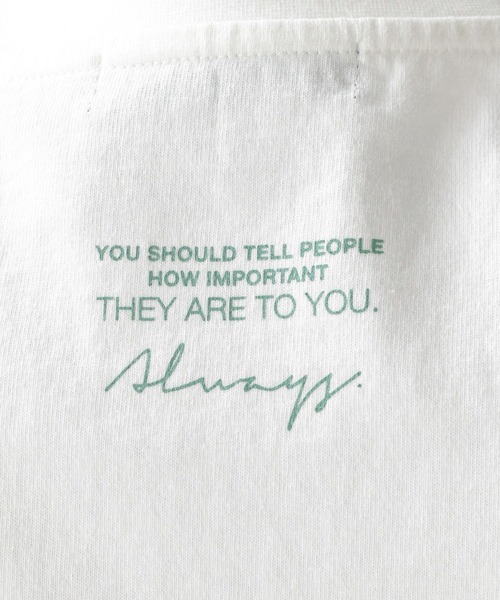 YOU SHOULD TELL PEOPLE
HOW IMPORTANT
THEY ARE TO YOU.
Always.